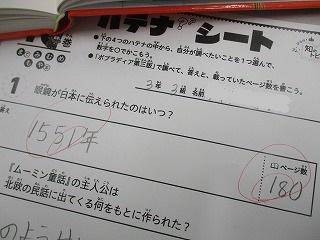 巻
ハテナ?シート
まみむめも
やゆよ
●下の4つのハテナの中から、自分が調べたいことを1つ選んで、
数字を○でかこもう。
●『ポプラディア第三版』で調べて、答えと、載っていたページ数を書こう。
3年 3組 名前
1 眼鏡が日本に伝えられたのはいつ?
答え
1551年
ページ数
180
『ムーミン童話』の主人公は
北欧の民話に出てくる何をもとに作られた?
のようせい